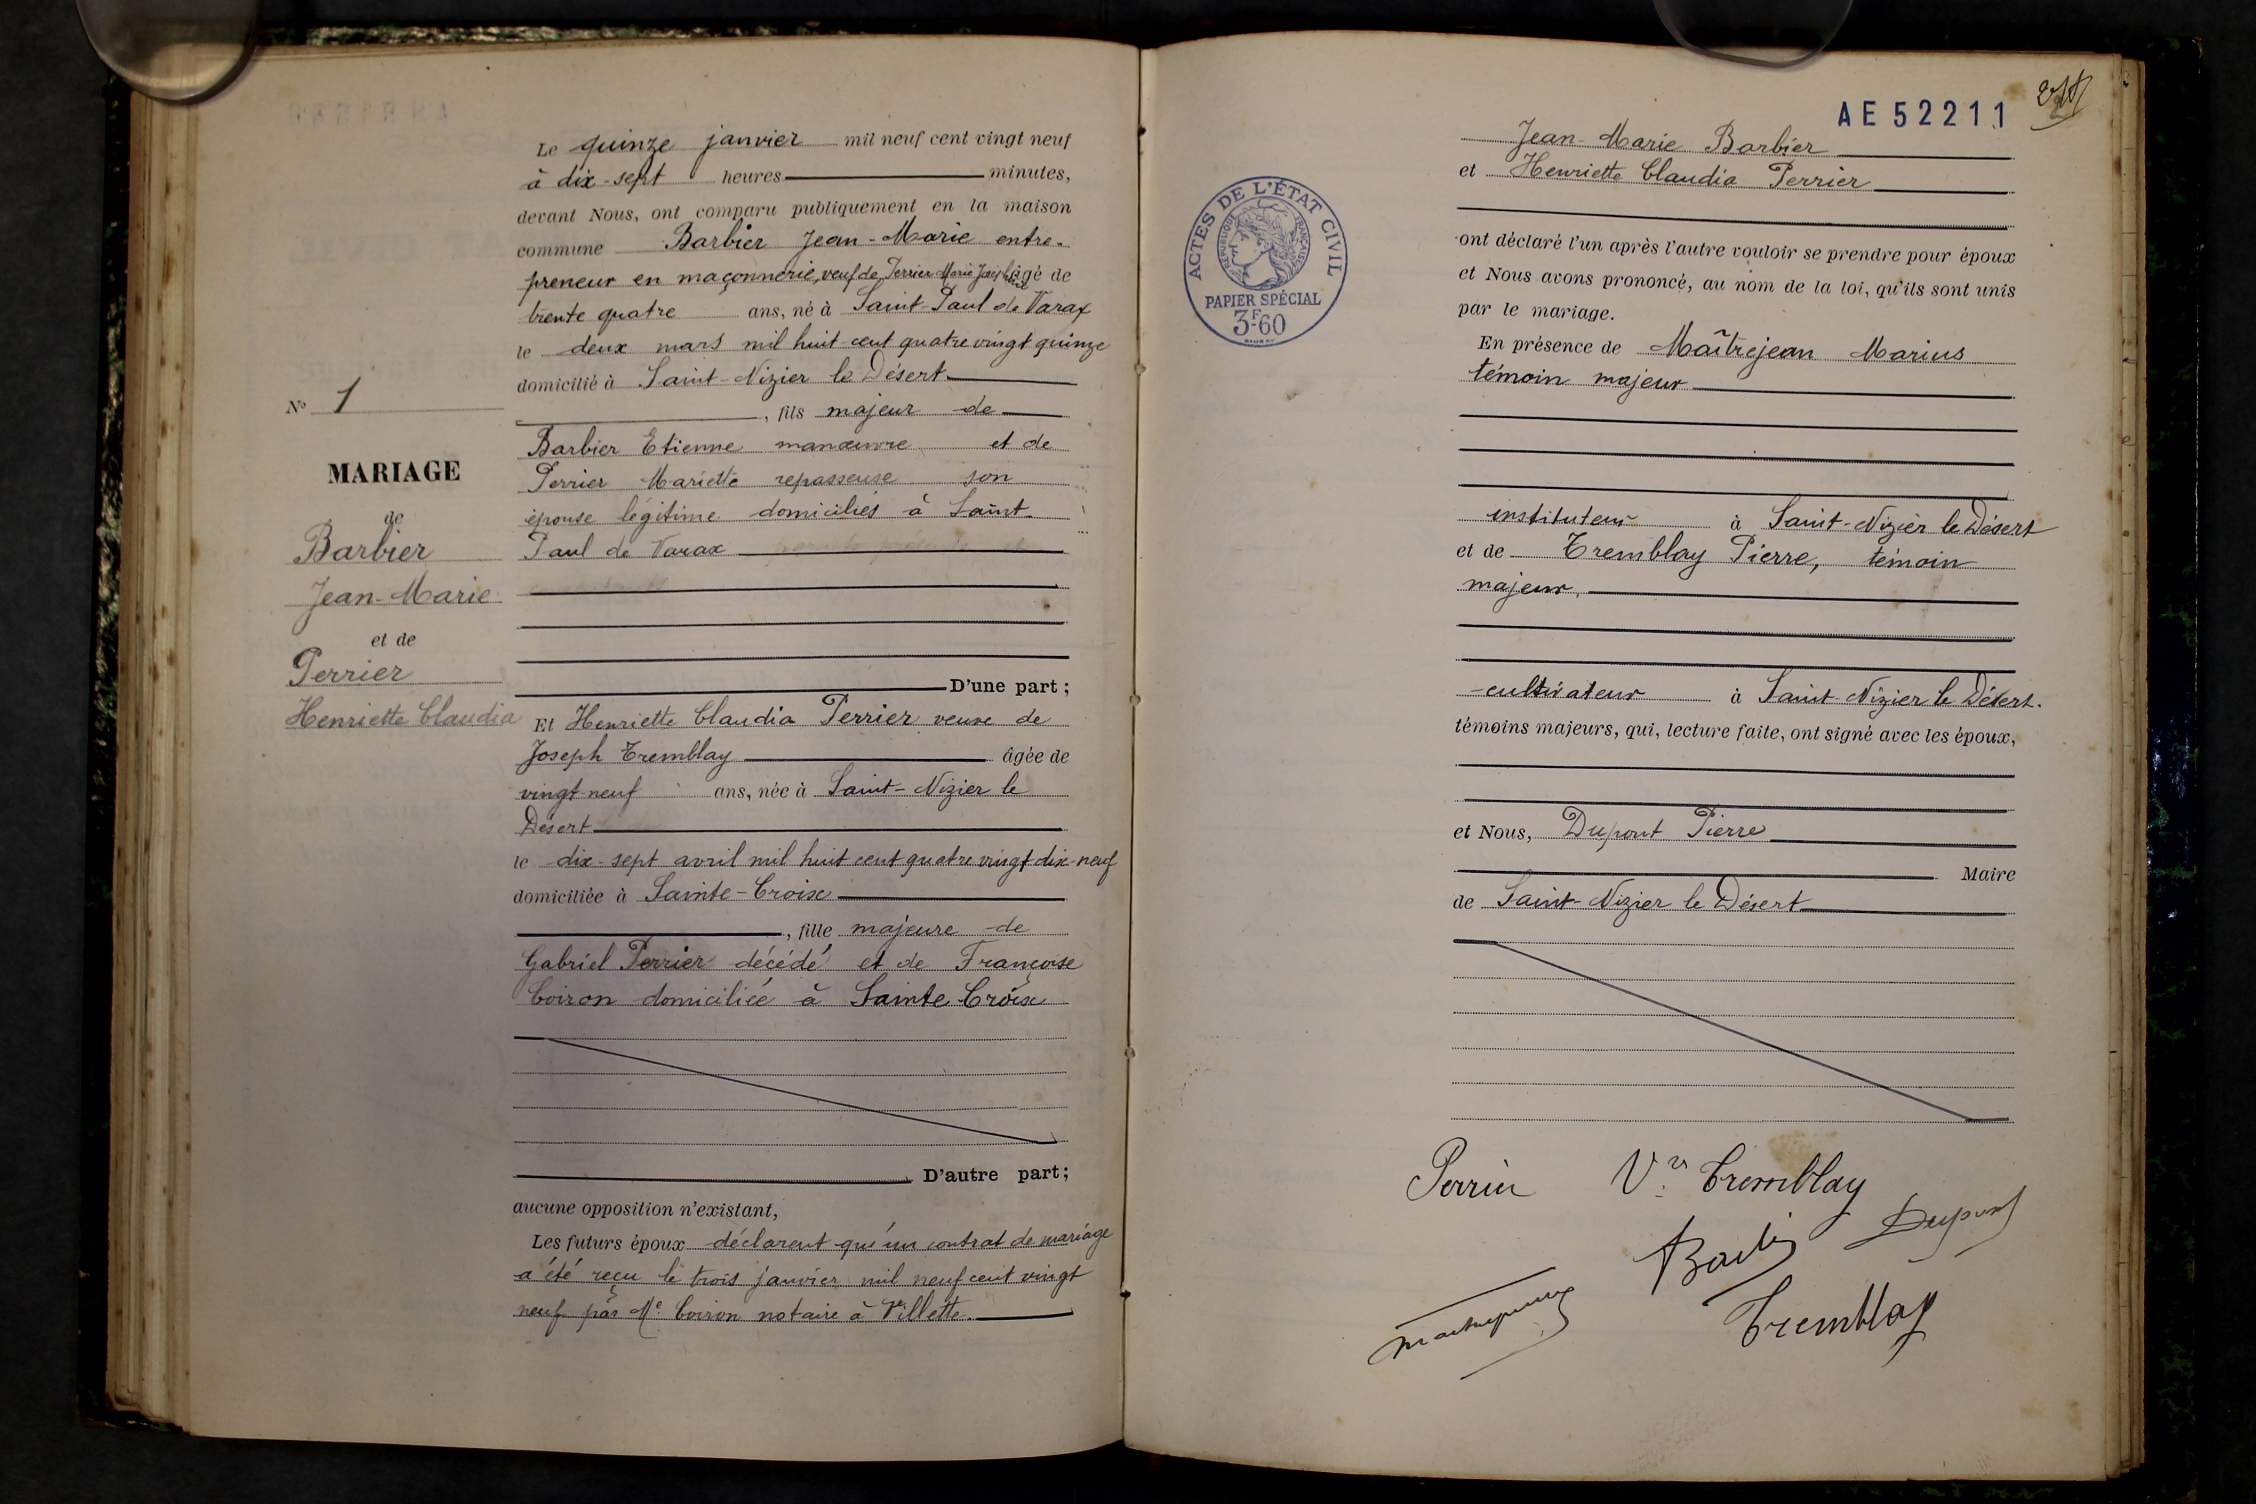 Le quinze janvier mil neuf cent vingt neuf
à dix-sept heures minutes,
devant Nous, ont comparu publiquement en la maison
commune Barbier Jean-Marie entre-
preneur en maçonnerie, veuf de Perrier Marie Joséphine âgé de
trente quatre ans, né à Saint-Paul de Varax
le deux mars mil huit cent quatre vingt quinze
domicilié à Saint-Nizier le Désert
, fils majeur de
Barbier Etienne manœuvre et de
Perrier Mariette repasseuse son
épouse légitime domiciliés à Saint-
Paul de Varax
D'une part;
Et Henriette Claudia Perrier veuve de
Joseph Tremblay âgée de
vingt-neuf ans, née à Saint-Nizier le
Désert
le dix-sept avril mil huit cent quatre vingt dix-neuf
domiciliée à Sainte-Croix
, fille majeure de
Gabriel Perrier décédé et de Françoise
Coiron domiciliée à Sainte Croix
D'autre part;
aucune opposition n'existant,
Les futurs époux déclarent qu'un contrat de mariage
a été reçu le trois janvier mil neuf cent vingt
neuf par Me Coiron notaire à Villette.
No 1
MARIAGE
de
Barbier
Jean-Marie
et de
Perrier
Henriette Claudia
AE52211
ACTES DE L'ÉTAT CIVIL
RÉPUBLIQUE FRANÇAISE
PAPIER SPÉCIAL
3F-60
Jean-Marie Barbier
et Henriette Claudia Perrier
ont déclaré l'un après l'autre vouloir se prendre pour époux
et Nous avons prononcé, au nom de la loi, qu'ils sont unis
par le mariage.
En présence de Maîtrejean Marius
témoin majeur
instituteur à Saint-Nizier le Désert
et de Tremblay Pierre, témoin
majeur,
cultivateur à Saint-Nizier le Désert.
témoins majeurs, qui, lecture faite, ont signé avec les époux,
et Nous, Dupont Pierre
Maire
de Saint-Nizier le Désert
Perrier Vve Tremblay
Barbier Dupont
Maitrejean Tremblay